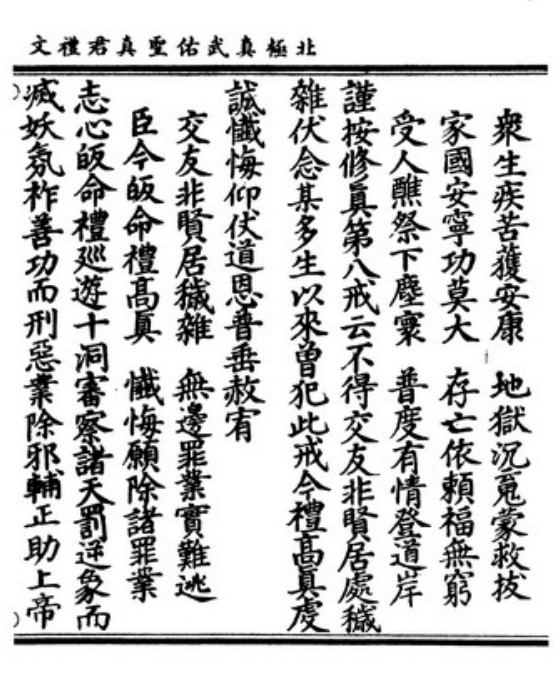 北極真武佑聖真君禮文
衆生疾苦獲安康　地獄沉䰟蒙救拔
家國安寧功莫大　存亡依頼福無窮
受人醮祭下塵寰　普度有情登道岸
謹按修眞第八戒云不得交友非賢居處穢
雜伏念某多生以來曽犯此戒今禮髙眞虔
誠懺悔仰伏道恩普垂赦宥
交友非賢居穢雜　無邊罪業實難逃
臣今皈命禮髙眞　懺悔願除諸罪業
志心皈命禮廵遊十洞審察諸天罰逆象而
滅妖氛祚善功而刑惡業除邪輔正助上帝